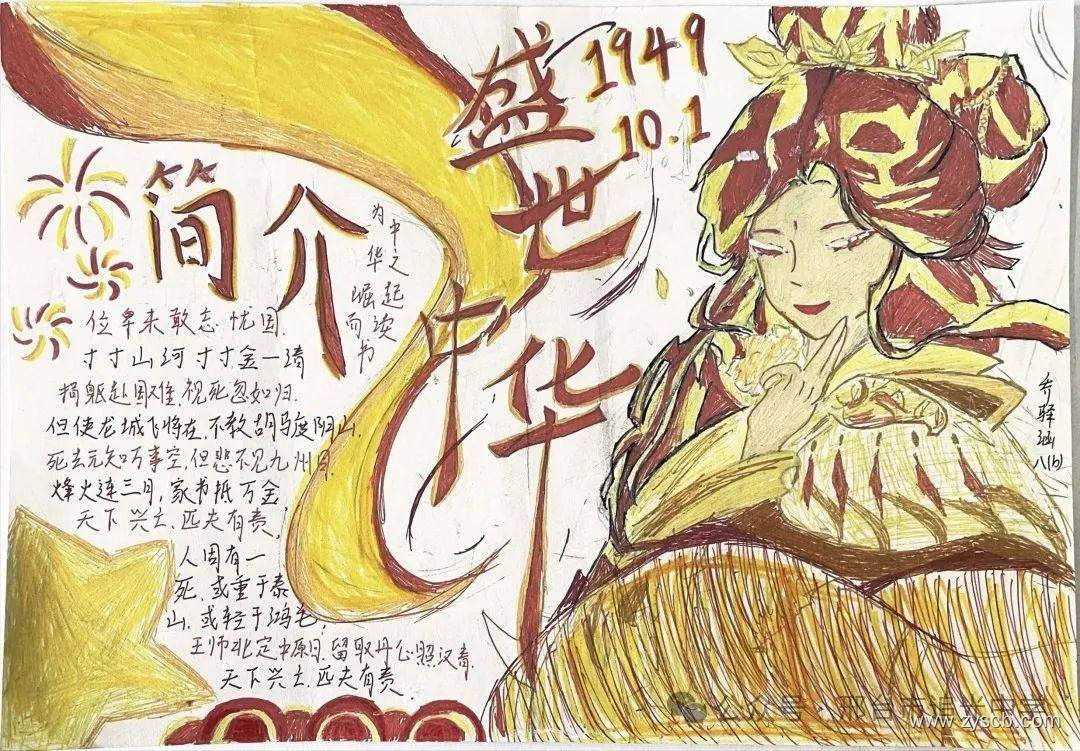 盛世中华
1949
10.1
简介
为中
华之
崛起
而读
书
位卑未敢忘忧国.
寸寸山河寸寸金一清
捐躯赴国难,视死忽如归.
但使龙城飞将在,不教胡马度阴山.
死去元知万事空,但悲不见九州同.
烽火连三月,家书抵万金
天下兴亡,匹夫有责;
人固有一
死,或重于泰
山,或轻于鸿毛;
王师北定中原日,留取丹心照汉青.
天下兴亡.匹夫有责.
乔驿涵
八(6)
公众号
www.zyscb.com